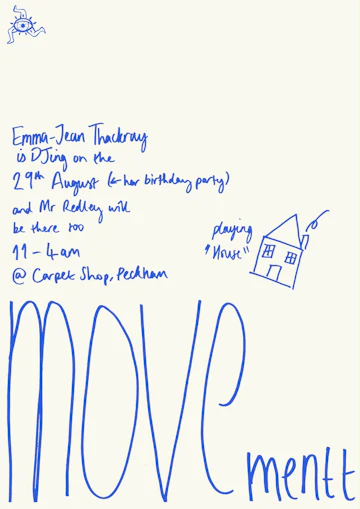 Emma-Jean Thackray
is DJing on the
29th August (←her birthday party)
and Mr Redley will
be there too
11 – 4am
@ Carpet Shop, Peckham
playing
"House"
move
mentt